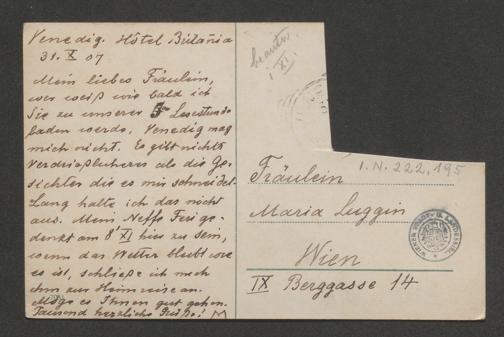 Venedig. Hôtel Britannia
31. X 07
Mein liebes Fräulein,
wer weiß wie bald ich
Sie zu unserer Lesestunde
laden werde. Venedig mag
mich nicht. Es gibt nichts
Verdrießlicheres als die Ge-
sichter die es mir schneidet.
Lang halte ich das nicht
aus. Mein Neffe Feri ge-
denkt am 8 XI hier zu sein,
wenn das Wetter bleibt wie
es ist, schließe ich mich
ihm zur Heimreise an.
Möge es Ihnen gut gehen.
Tausend herzliche Grüße!
I. N. 222.195
Fräulein
Maria Luggin
Wien
IX Berggasse 14